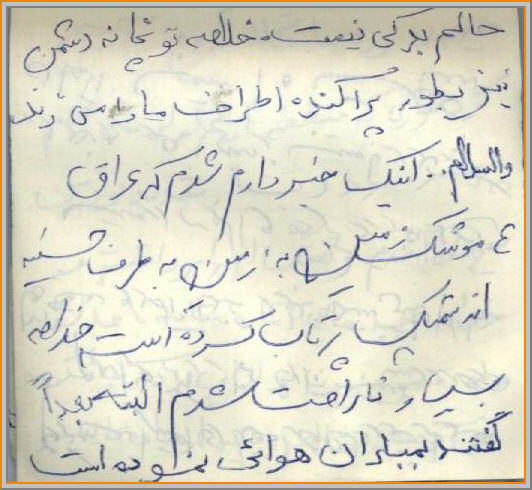 حالم بد کی نیست. خلاصه توپخانه دشمن
نیز بطور پراکنده اطراف ما را می زند
والسلام.. اینک خبردارم شدم که عراق
۴ موشک زمین به زمین به طرف حسینیه
اندیمشک پرتاب کرده است خلاصه
بسیار ناراحت شدم البته بعداً
گفتند بمباران هوائی نموده است